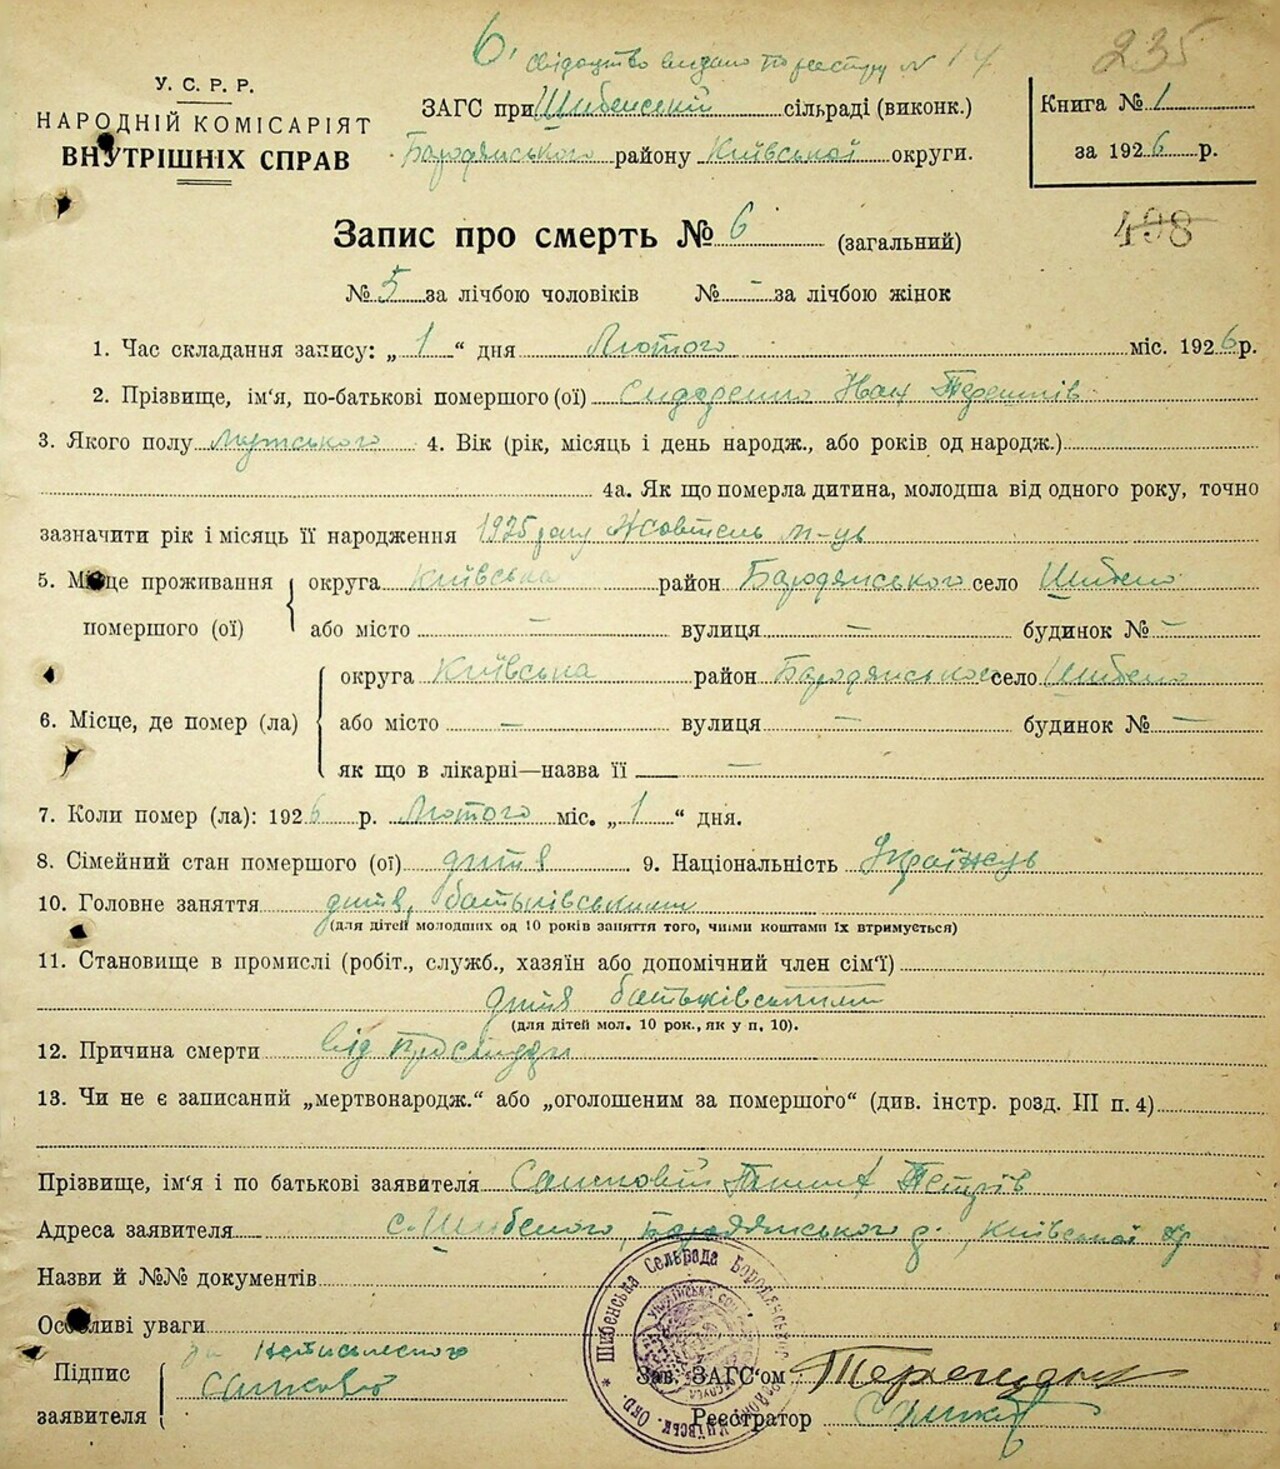 6. свідоцтво видано по реєстру № 14
235
У. С. Р. Р.
НАРОДНІЙ КОМІСАРІЯТ
ВНУТРІШНІХ СПРАВ
ЗАГС при Шибенській сільраді (виконк.)
Бородянського району Київської округи.
Книга № 1
за 1926 р.
498
Запис про смерть № 6 (загальний)
№ 5 за лічбою чоловіків № - за лічбою жінок
1. Час складання запису: „ 1 “ дня Лютого міс. 1926 р.
2. Прізвище, ім'я, по-батькові помершого (ої) Сидоренко Іван
3. Якого полу мужського 4. Вік (рік, місяць і день народж., або років од народж.)
4а. Як що померла дитина, молодша від одного року, точно
зазначити рік і місяць її народження 1925 року Жовтень м-ць
5. Місце проживання помершого (ої) округа Київська район Бородянського село Шибено
або місто — вулиця — будинок № —
6. Місце, де помер (ла) округа Київська район Бородянського село Шибено
або місто — вулиця — будинок № —
як що в лікарні—назва її —
7. Коли помер (ла): 1926 р. Лютого міс. „ 1 “ дня.
8. Сімейний стан помершого (ої) дитя 9. Національність Українець
10. Головне заняття дитя, батьківськими
(для дітей молодших од 10 років заняття того, чиїми коштами їх втримується)
11. Становище в промислі (робіт., служб., хазяїн або допомічний член сім'ї)
дитя батьківськими
(для дітей мол. 10 рок., як у п. 10).
12. Причина смерти від простуди
13. Чи не є записаний „мертвонародж.“ або „оголошеним за помершого“ (див. інстр. розд. III п. 4)
Прізвище, ім'я і по батькові заявителя Петрів
Адреса заявителя с. Шибеного, Бородянського р., Київської окр
Назви й №№ документів
Особливі уваги
Підпис заявителя за неписьменого
Шибенська Сельрада Бородянськ. район. Київськ. Окр.
Зав. ЗАГС'ом
Реєстратор